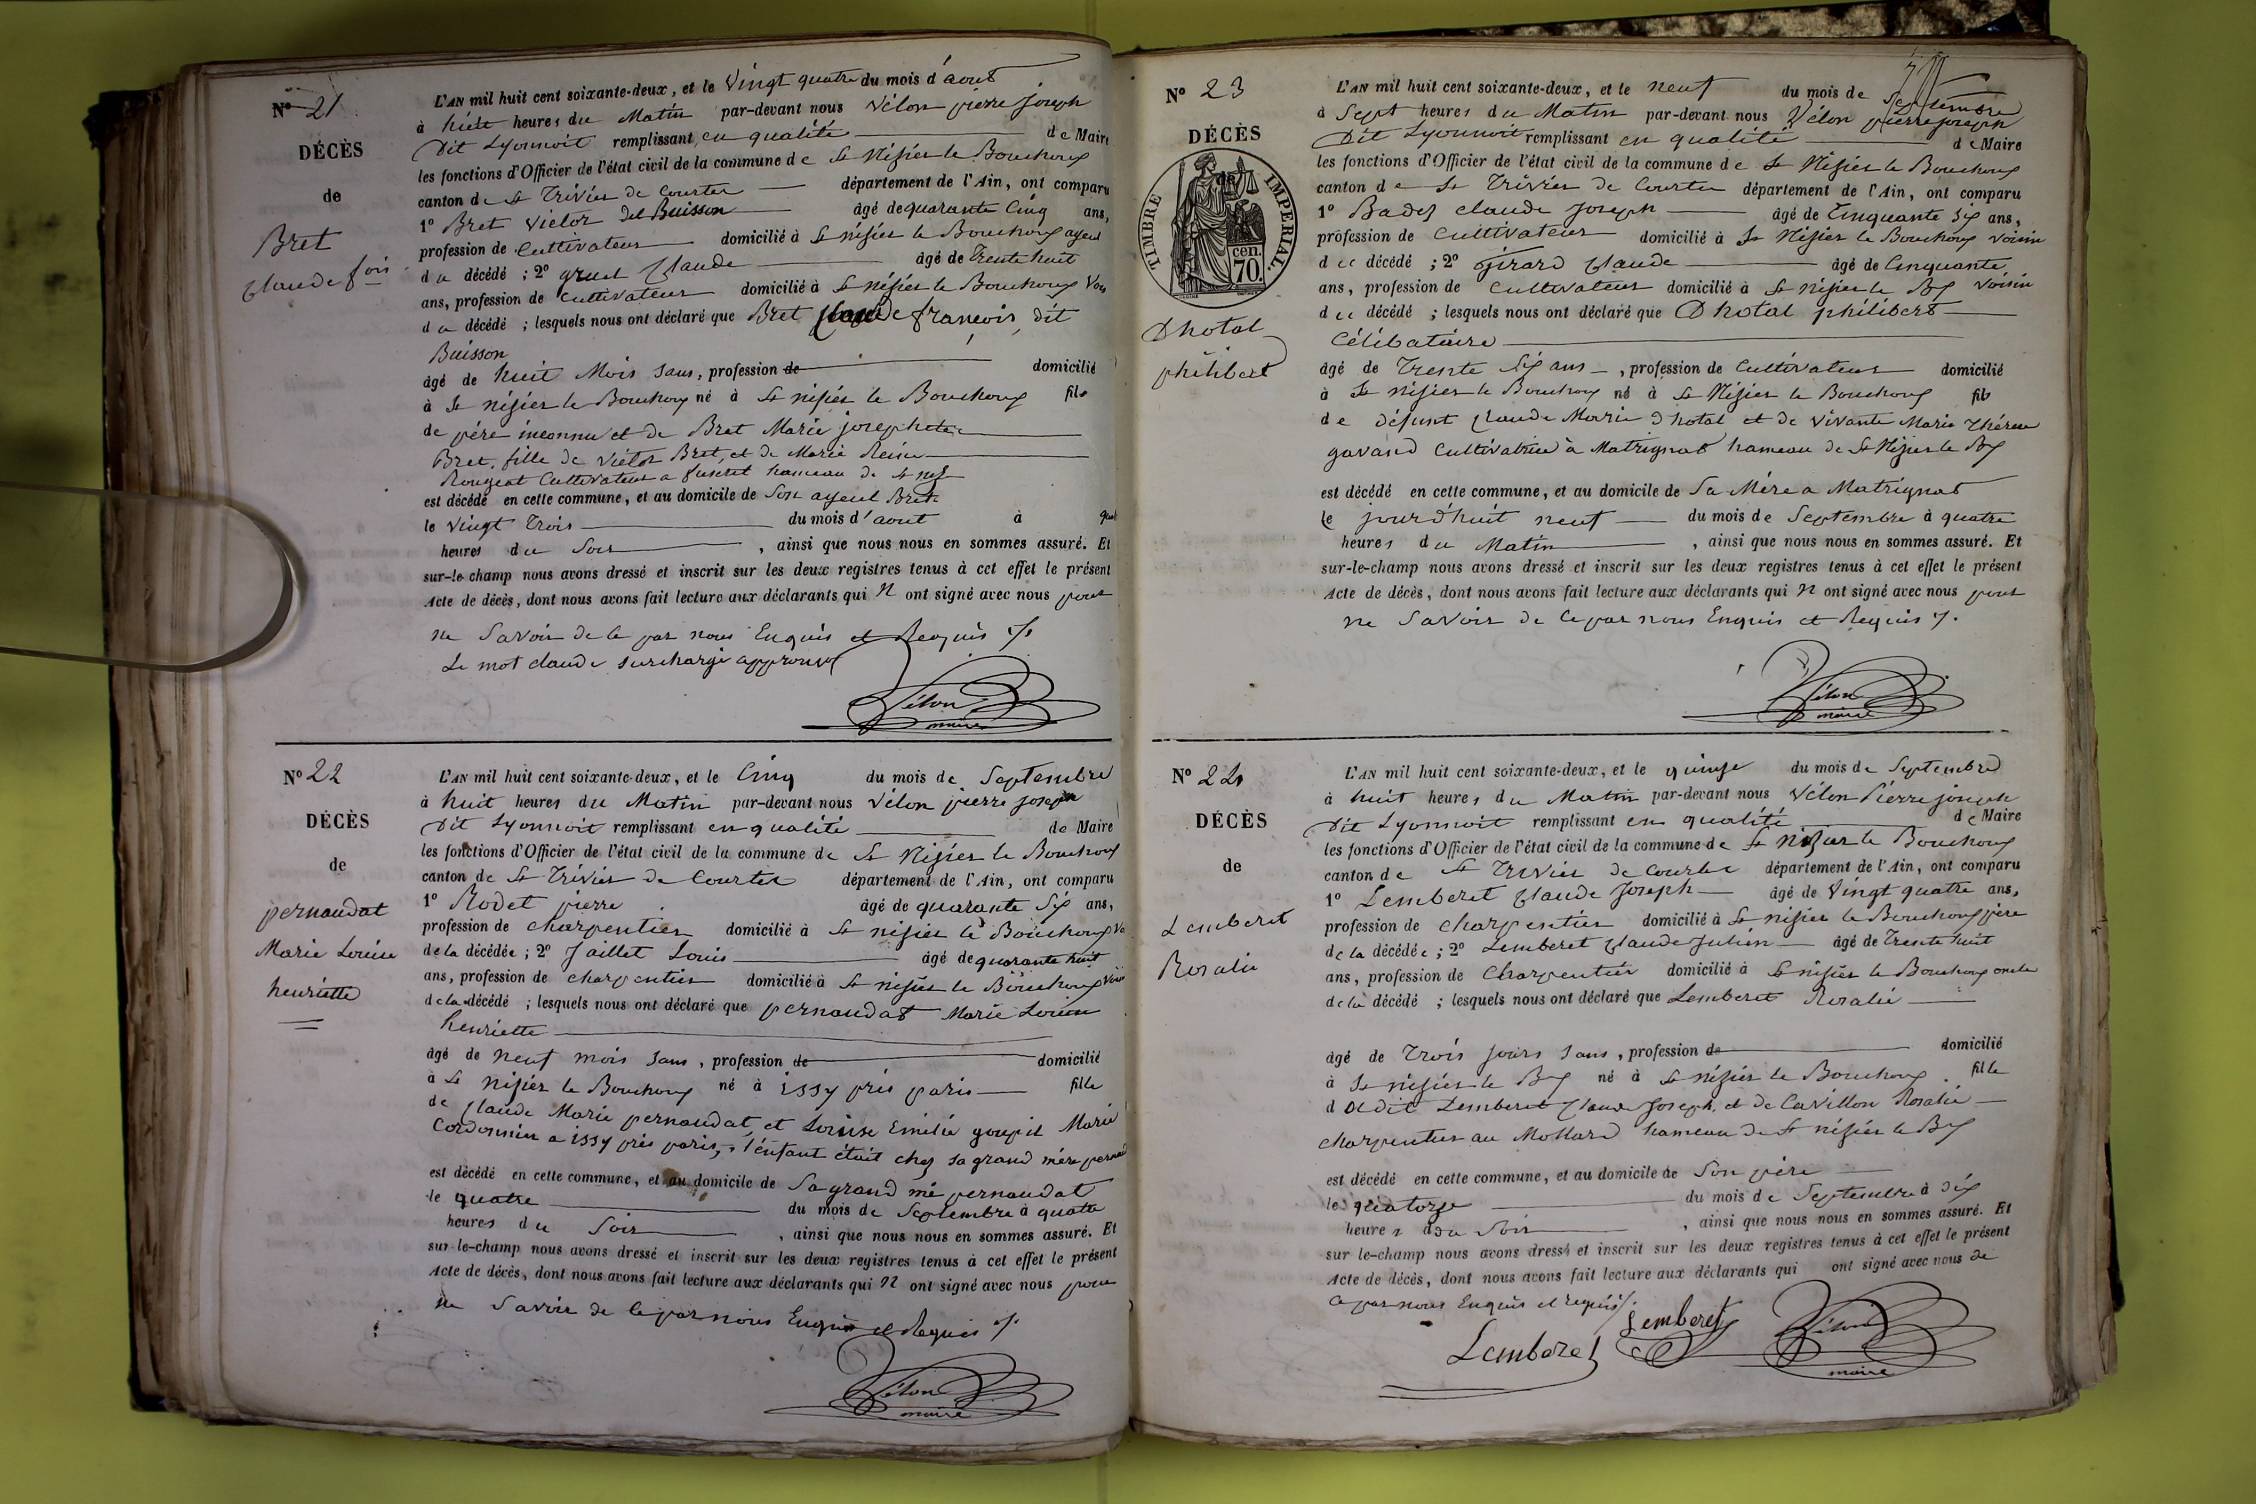 Nº 21
DÉCÈS
de
Bret
Claude fois
L'AN mil huit cent soixante-deux, et le Vingt quatre du mois d'aout
à huit heures du Matin par-devant nous Vélon pierre joseph
Dit Lyonnoit remplissant en qualité de Maire
les fonctions d'Officier de l'état civil de la commune de St Nisier le Bouchoux
canton de St Trivier de Courtes département de l'Ain, ont comparu
1º Bret Victor dit Buisson âgé de quarante Cinq ans,
profession de Cultivateur domicilié à St nisier le Bouchoux ayeul
du décédé ; 2º gruel Claude âgé de Trente huit
ans, profession de Cultivateur domicilié à St nisier le Bouchoux Vois
du décédé ; lesquels nous ont déclaré que Bret Claude francois dit
Buisson
âgé de huit Mois sans, profession de domicilié
à St nisier le Bouchoux né à St nisier le Bouchoux fils
de père inconnu et de Bret Marie josephete
Bret, fille de Victor Bret, et de Marie Reine
Rougeat Cultivateur a hameau de St
est décédé en cette commune, et au domicile de Son ayeul Bret
le Vingt Trois du mois d'aout à
heures du Soir , ainsi que nous nous en sommes assuré. Et
sur-le-champ nous avons dressé et inscrit sur les deux registres tenus à cet effet le présent
Acte de décès, dont nous avons fait lecture aux déclarants qui n ont signé avec nous pour
ne Savoir de ce par nous Enquis et Requis
Le mot claude surchargé approuvé
Vélon
maire
Nº 22
DÉCÈS
de
pernaudat
Marie Louise
henriette
L'AN mil huit cent soixante-deux, et le Cinq du mois de Septembre
à huit heures du Matin par-devant nous Vélon pierre joseph
Dit Lyonnoit remplissant en qualité de Maire
les fonctions d'Officier de l'état civil de la commune de St Nisier le Bouchoux
canton de St Trivier de Courtes département de l'Ain, ont comparu
1º Rodet pierre âgé de quarante Six ans,
profession de charpentier domicilié à St nisier le Bouchoux Vo
de la décédée ; 2º Jaillet Louis âgé de quarante huit
ans, profession de charpentier domicilié à St nisier le Bouchoux Vois
de la décédé ; lesquels nous ont déclaré que pernaudat Marie Louise
henriette
âgé de neuf mois sans, profession de domicilié
à St nisier le Bouchoux né à issy prés paris fille
de Claude Marie pernaudat, et Louise Emilie goupil Marié
Cordonnier a issy prés paris, l'enfant était chez sa grand mére
est décédé en cette commune, et au domicile de Sa grand mé pernaudat
le quatre du mois de Septembre à quatre
heures du Soir , ainsi que nous nous en sommes assuré. Et
sur-le-champ nous avons dressé et inscrit sur les deux registres tenus à cet effet le présent
Acte de décès, dont nous avons fait lecture aux déclarants qui n ont signé avec nous pour
ne Savoir de ce par nous Enquis et Requis
Vélon
maire
Nº 23
DÉCÈS
de
TIMBRE IMPERIAL.
70 cen.
Dhotal
philibert
L'AN mil huit cent soixante-deux, et le neuf du mois de Septembre
à Sept heures du Matin par-devant nous Vélon pierre joseph
Dit Lyonnoit remplissant en qualité de Maire
les fonctions d'Officier de l'état civil de la commune de St Nisier le Bouchoux
canton de St Trivier de Courtes département de l'Ain, ont comparu
1º Badez claude Joseph âgé de Cinquante Six ans,
profession de Cultivateur domicilié à St Nisier le Bouchoux voisin
du décédé ; 2º Girard Claude âgé de Cinquante
ans, profession de Cultivateur domicilié à St nisier le Bx Voisin
du décédé ; lesquels nous ont déclaré que Dhotal philibert
Célibataire
âgé de Trente Six ans, profession de Cultivateur domicilié
à St nisier le Bouchoux né à St Nisier le Bouchoux fils
de défunt Claude Marie Dhotal et de Vivante Marie Thérèse
gavand Cultivatrice à Matrignat hameau de St Nisier le Bx
est décédé en cette commune, et au domicile de Sa Mère a Matrignat
le jourd'huit neuf du mois de Septembre à quatre
heures du Matin , ainsi que nous nous en sommes assuré. Et
sur-le-champ nous avons dressé et inscrit sur les deux registres tenus à cet effet le présent
Acte de décès, dont nous avons fait lecture aux déclarants qui n ont signé avec nous pour
ne Savoir de ce par nous Enquis et Requis
Vélon
maire
Nº 24
DÉCÈS
de
Lemberet
Rosalie
L'AN mil huit cent soixante-deux, et le quinze du mois de Septembre
à huit heures du Matin par-devant nous Vélon Pierre joseph
Dit Lyonnoit remplissant en qualité de Maire
les fonctions d'Officier de l'état civil de la commune de St Nisier le Bouchoux
canton de St Trivier de Courtes département de l'Ain, ont comparu
1º Lemberet Claude Joseph âgé de Vingt quatre ans,
profession de charpentier domicilié à St nisier le Bouchoux père
de la décédée ; 2º Lemberet Claude Julien âgé de Trente huit
ans, profession de Charpentier domicilié à St nisier le Bouchoux oncle
de la décédé ; lesquels nous ont déclaré que Lemberet Rosalie
âgé de Trois jours sans, profession de domicilié
à St nisier le Bx né à St nisier le Bouchoux fille
dudit Lemberet Claude Joseph, et de Cavillon Rosalie
charpentier au Mollard hameau de St nisier le Bx
est décédé en cette commune, et au domicile de Son père
le quatorze du mois de Septembre à dix
heures du Soir , ainsi que nous nous en sommes assuré. Et
sur-le-champ nous avons dressé et inscrit sur les deux registres tenus à cet effet le présent
Acte de décès, dont nous avons fait lecture aux déclarants qui ont signé avec nous de
ce par nous Enquis et requis
Lemberet
Lemberet
Vélon
maire